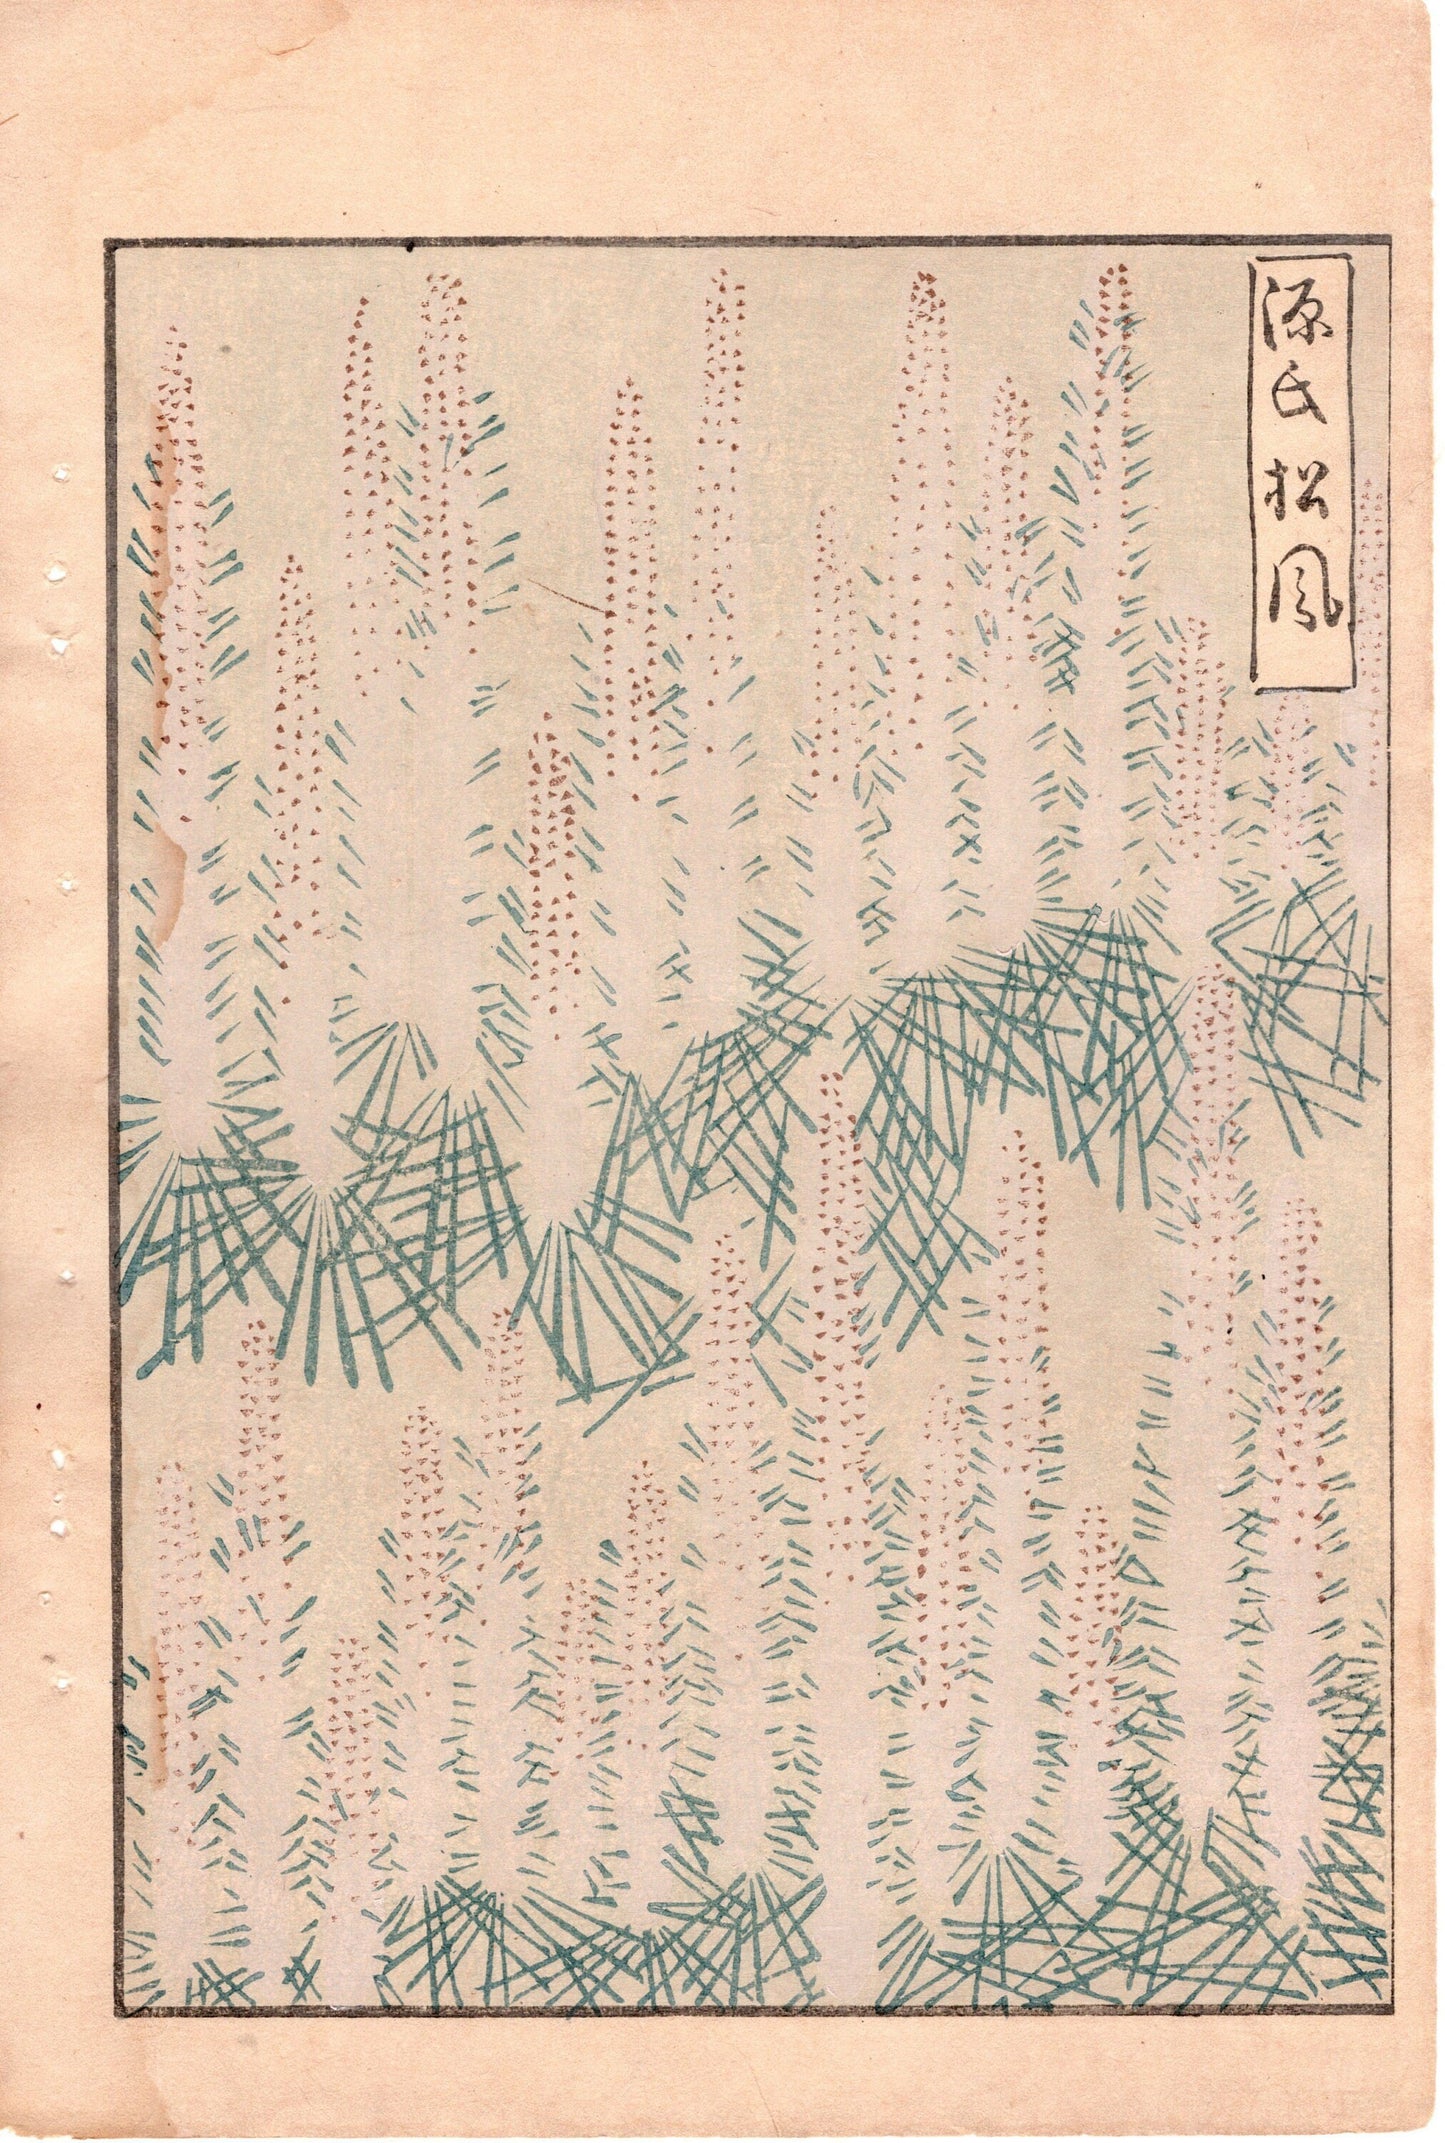 源氏松風